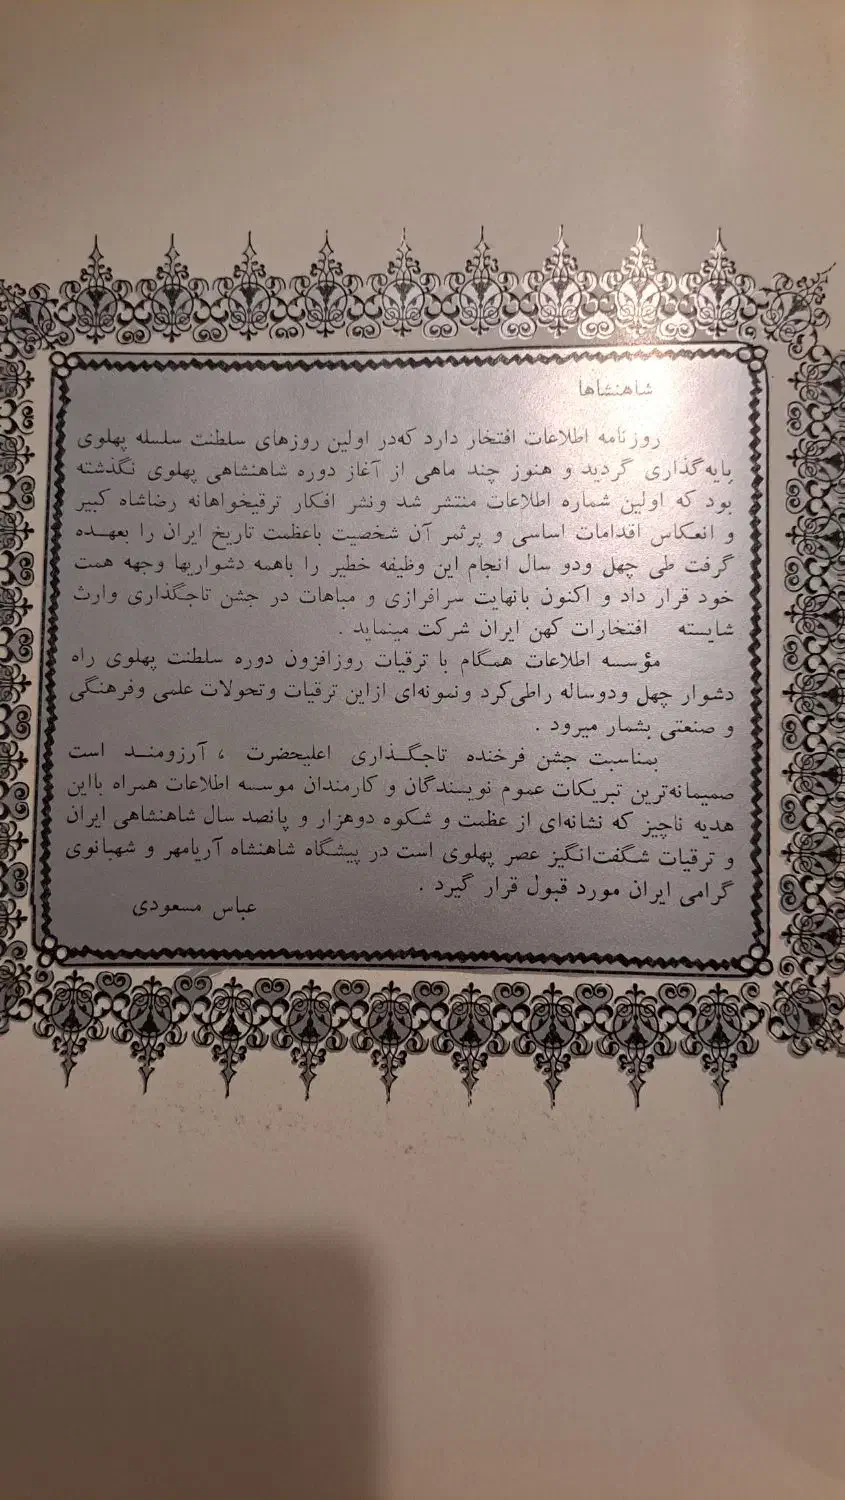 شاهنشاها
روزنامه اطلاعات افتخار دارد که‌در اولین روزهای سلطنت سلسله پهلوی
پایه‌گذاری گردید و هنوز چند ماهی از آغاز دوره شاهنشاهی پهلوی نگذشته
بود که اولین شماره اطلاعات منتشر شد ونشر افکار ترقیخواهانه رضاشاه کبیر
و انعکاس اقدامات اساسی و پرثمر آن شخصیت باعظمت تاریخ ایران را بعهـده
گرفت طی چهل ودو سال انجام این وظیفه خطیر را باهمه دشواریها وجهه همت
خود قرار داد و اکنون بانهایت سرافرازی و مباهات در جشن تاجگذاری وارث
شایسته افتخارات کهن ایران شرکت مینماید .
مؤسسه اطلاعات همگام با ترقیات روزافزون دوره سلطنت پهلوی راه
دشوار چهل ودوساله راطی‌کرد ونمونه‌ای ازاین ترقیات وتحولات علمی وفرهنگی
و صنعتی بشمار میرود .
بمناسبت جشن فرخنده تاجگـذاری اعلیحضرت ، آرزومنـد است
صمیمانه‌ترین تبریکات عموم نویسندگان و کارمندان موسسه اطلاعات همراه بااین
هدیه ناچیز که نشانه‌ای از عظمت و شکوه دوهزار و پانصد سال شاهنشاهی ایران
و ترقیات شگفت‌انگیز عصر پهلوی است در پیشگاه شاهنشاه آریامهر و شهبانوی
گرامی ایران مورد قبول قرار گیرد .
عباس مسعودی